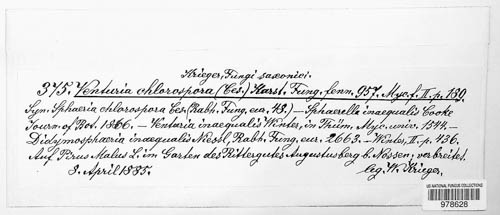 Krieger, Fungi saxonici.
375. Venturia chlorospora (Ces.) Karst. Fung. fenn. 957. Myc. f. II. p. 189.
Syn. Sphaeria chlorospora Ces. (Rabh. Fung. eur. 48.) — Sphaerella inaequalis Cooke
Journ. of Bot. 1866. — Venturia inaequalis Winter, in Thüm. Myc. univ. 1544. —
Didymosphaeria inaequalis Niessl, Rabh. Fung. eur. 2663. — Winter, II. p. 436.
Auf Pirus Malus L. im Garten des Rittergutes Augustusberg b. Nossen, verbreitet.
3. April 1885. leg. W. Krieger.
US NATIONAL FUNGUS COLLECTIONS
978628